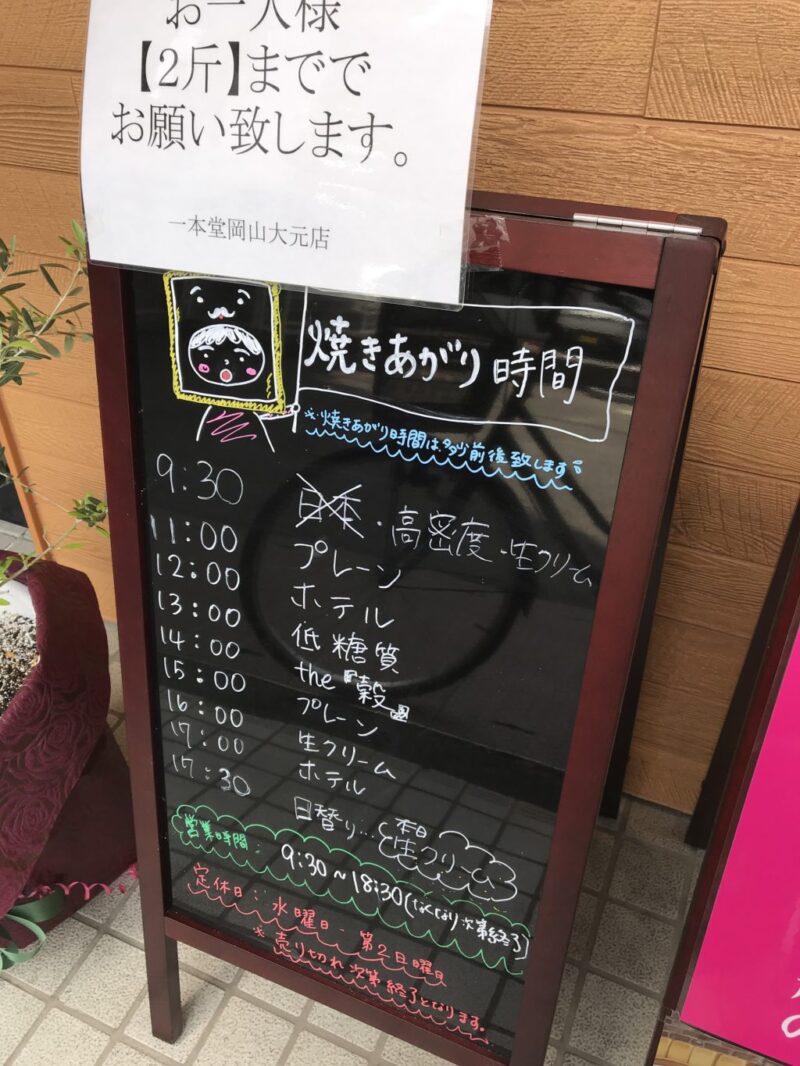 お一人様
【2斤】までで
お願い致します。
一本堂岡山大元店
焼きあがり時間
※焼きあがり時間は多少前後致します
9:30 日本・高密度・生クリーム
11:00 プレーン
12:00 ホテル
13:00 低糖質
14:00 the『穀』
15:00 プレーン
16:00 生クリーム
17:00 ホテル
17:30 日替り…本日生クリーム
営業時間: 9:30~18:30(なくなり次第終了)
定休日:水曜日・第2日曜日
※売り切れ次第終了となります。